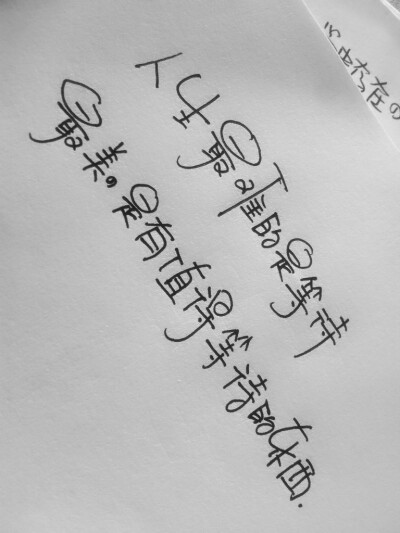 人生最难的是等待
最美。是有值得等待的东西.
心中存在の